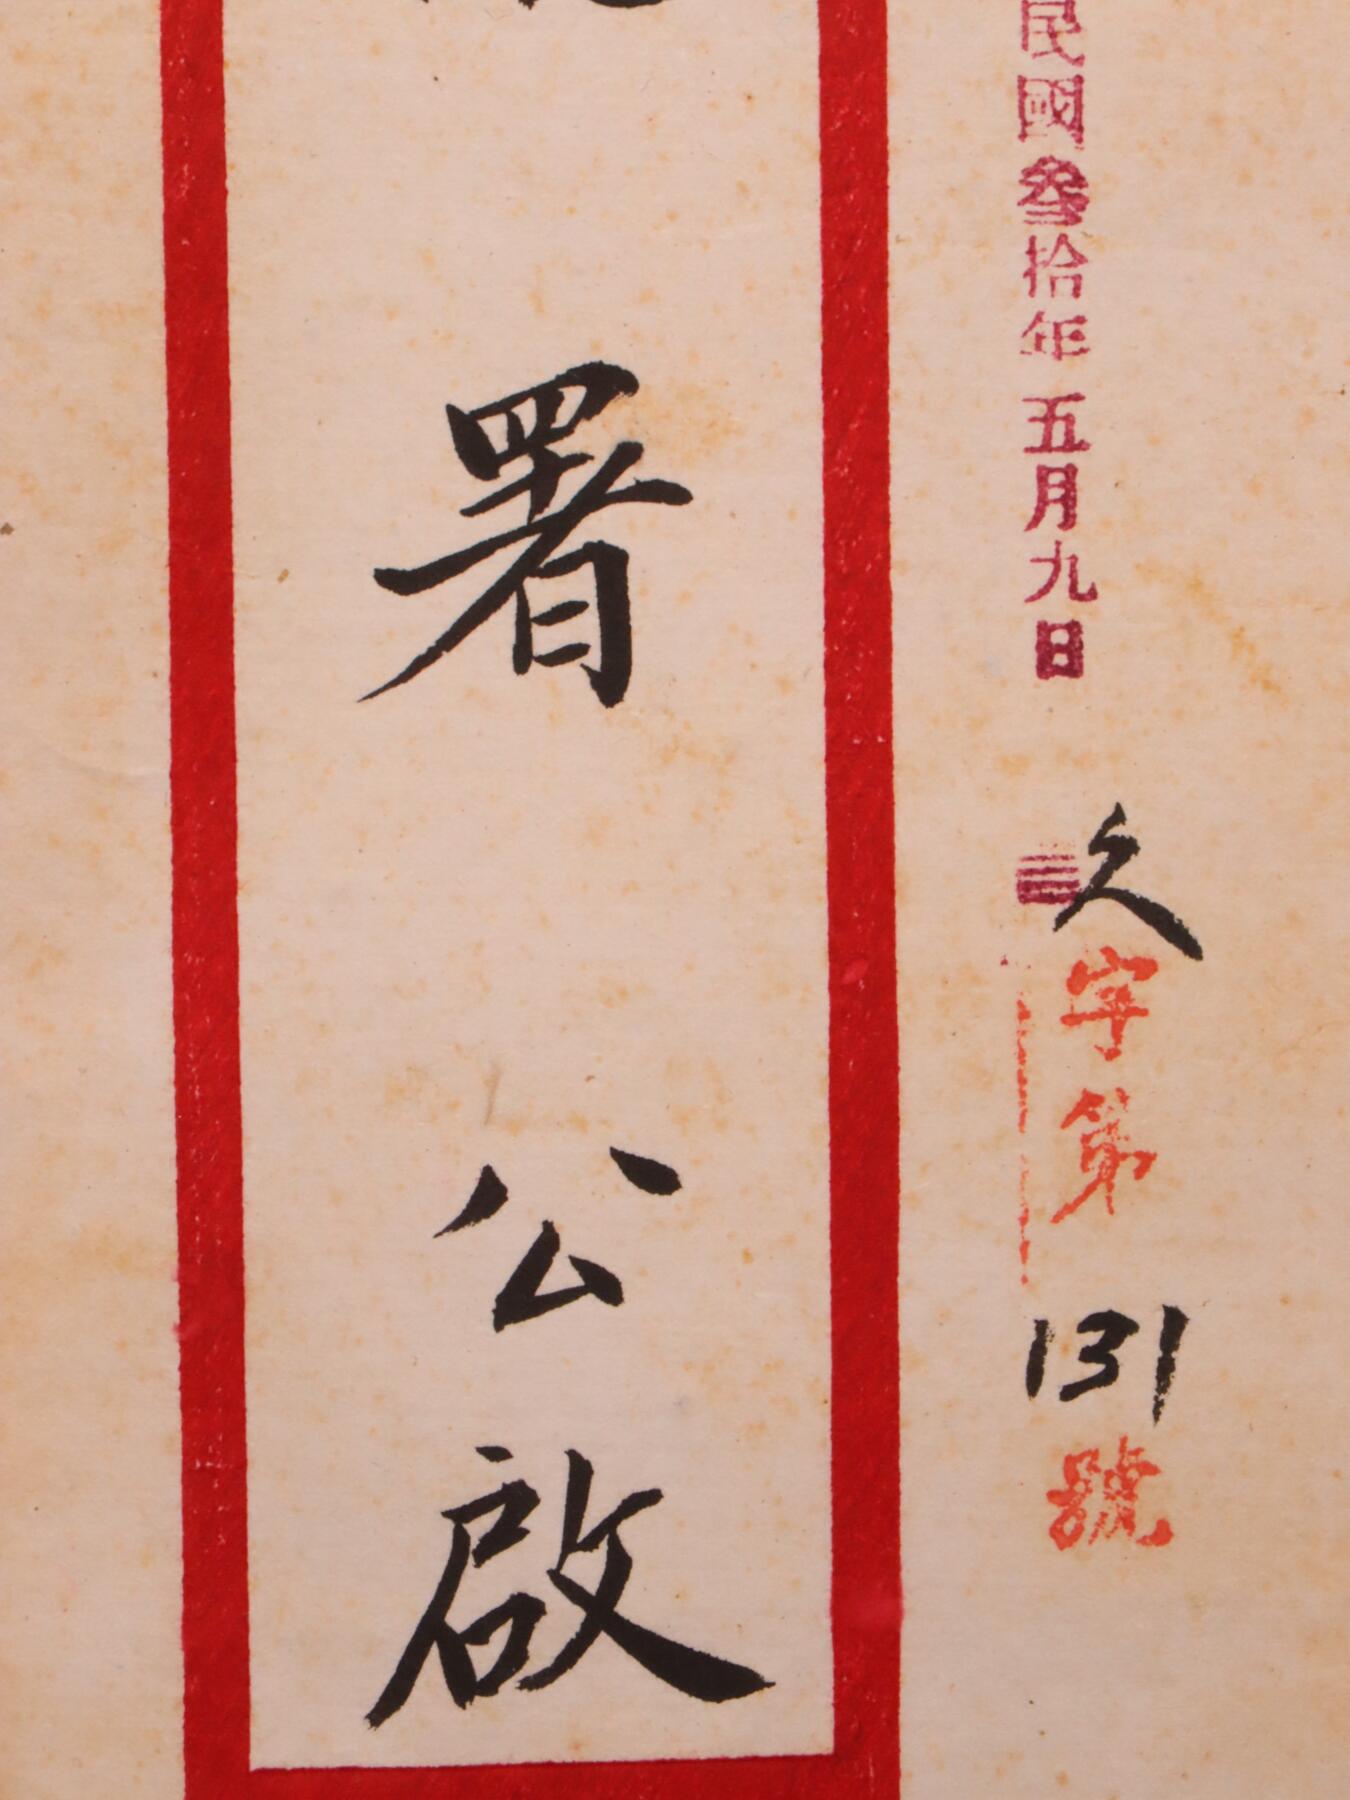 民國叁拾年五月九日
久字第131號
署公啟